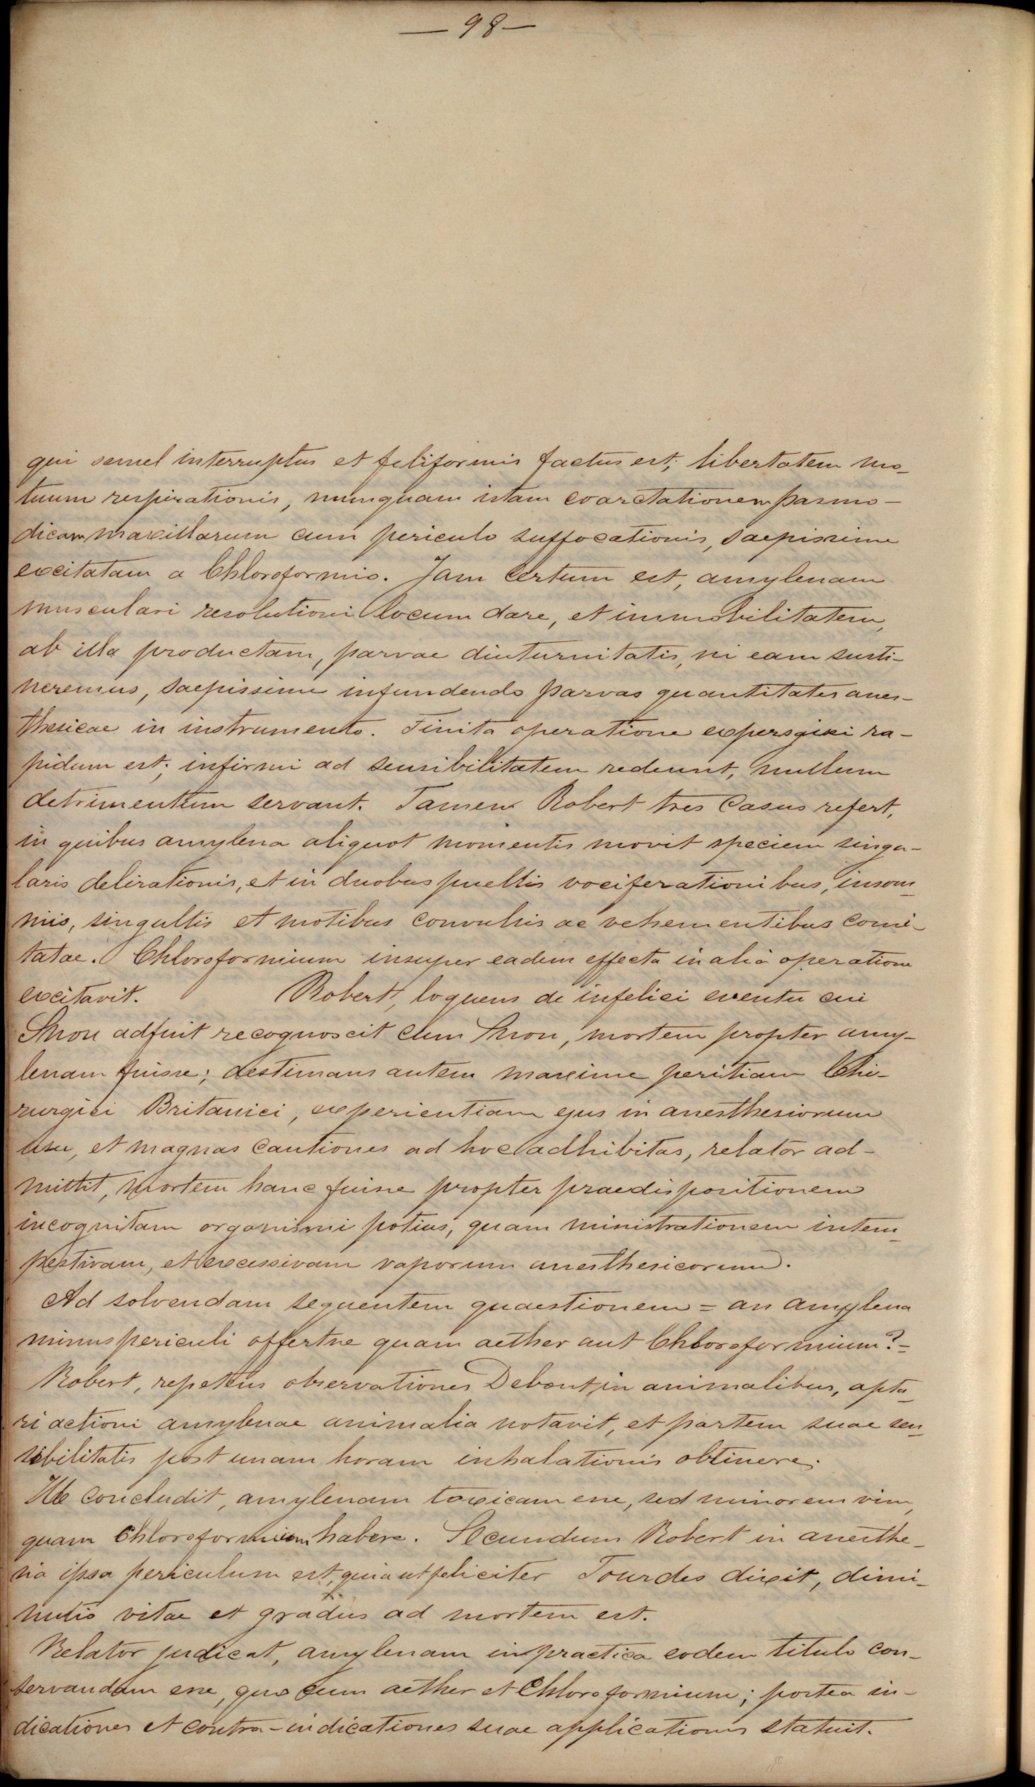 — 98 —
qui semel interruptus et filiformis factus est; libertatem mo-
tuum respirationis, nunquam istam coarctationem pasmo-
dicam maxillarum cum periculo suffocationis, saepissime
excitatam a Chloroformio. Jam certum est, amylenam
musculari resolutioni locum dare, et immobilitatem,
ab illa productam, parvae diuturnitatis, ni eam susti-
neremus, saepissime infundendo parvas quantitates anes-
thesicae in instrumento. Finita operatione expergisci ra-
pidum est; infirmi ad sensibilitatem redeunt, nullum
detrimentum servant. Tamen Robert tres Casus refert,
in quibus amylena aliquot momentis movit speciem singu-
laris delirationis, et in duobus puellis vociferationibus, insom-
niis, singultis et motibus convulsis ac vehementibus comi-
tatae. Chloroformium insuper eadem effecta in alia operatione
excitavit. Robert, loquens de infelici eventu cui
Snou adfuit recognoscit cum Snou, mortem propter amy-
lenam fuisse; aestimans autem maxime peritiam Chi-
rurgici Britanici, experientiam ejus in anesthesiorum
usu, et magnas cautiones ad hoc adhibitas, relator ad-
mittit, mortem hanc fuisse propter praedispositionem
incognitam organismi potius, quam ministrationem intem-
pestivam, et excessivam vaporum anesthesicorum.
Ad solvendam sequentem quaestionem = an amylena
minus periculi offertne quam aether aut Chloroformium? =
Robert, repetens observationes Debout, in animalibus, apta-
ri actioni amylenae animalia notavit, et partem suae sen-
sibilitatis post unam horam inhalationis obtinere.
Ille concludit, amylenam toxicam esse, sed minorem vim,
quam Chloroformium habere. Secundum Robert in anesthe-
sia ipsa periculum est, quia ut feliciter Tourdes dixit, dimi-
nutio vitae et gradus ad mortem est.
Relator judicat, amylenam in practica eodem titulo con-
servandam esse, quo cum aether et Chloroformium; postea in-
dicationes et contra-indicationes suae applicationis statuit.